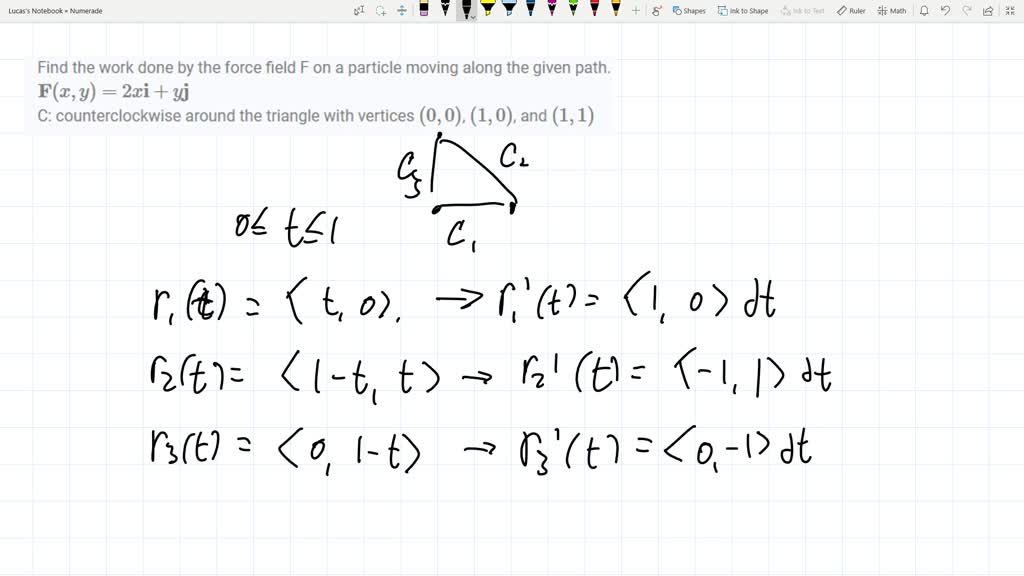 Lucas's Notebook » Numerade
Shapes Ink to Shape Ink to Text Ruler Math
Find the work done by the force field F on a particle moving along the given path.
F(x, y) = 2xi + yj
C: counterclockwise around the triangle with vertices (0, 0), (1, 0), and (1, 1)
C₃ C₂
0≤ t≤1
C₁
r₁(t) = ⟨t, 0⟩. → r₁'(t) = ⟨1, 0⟩ dt
r₂(t) = ⟨1-t, t⟩ → r₂'(t) = ⟨-1, 1⟩ dt
r₃(t) = ⟨0, 1-t⟩ → r₃'(t) = ⟨0, -1⟩ dt